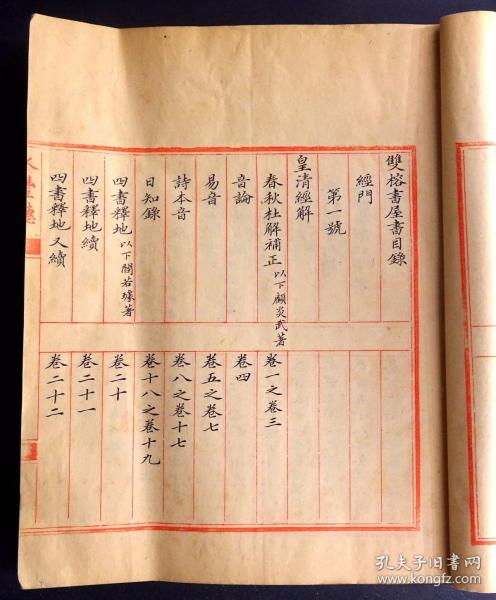 雙榕書屋書目錄
經門
第一號
皇清經解
春秋杜解補正以下顧炎武著 卷一之卷三
音論 卷四
易音 卷五之卷七
詩本音 卷八之卷十七
日知錄 卷十八之卷十九
四書釋地以下閻若璩著 卷二十
四書釋地續 卷二十一
四書釋地又續 卷二十二
孔夫子旧书网
www.kongfz.com